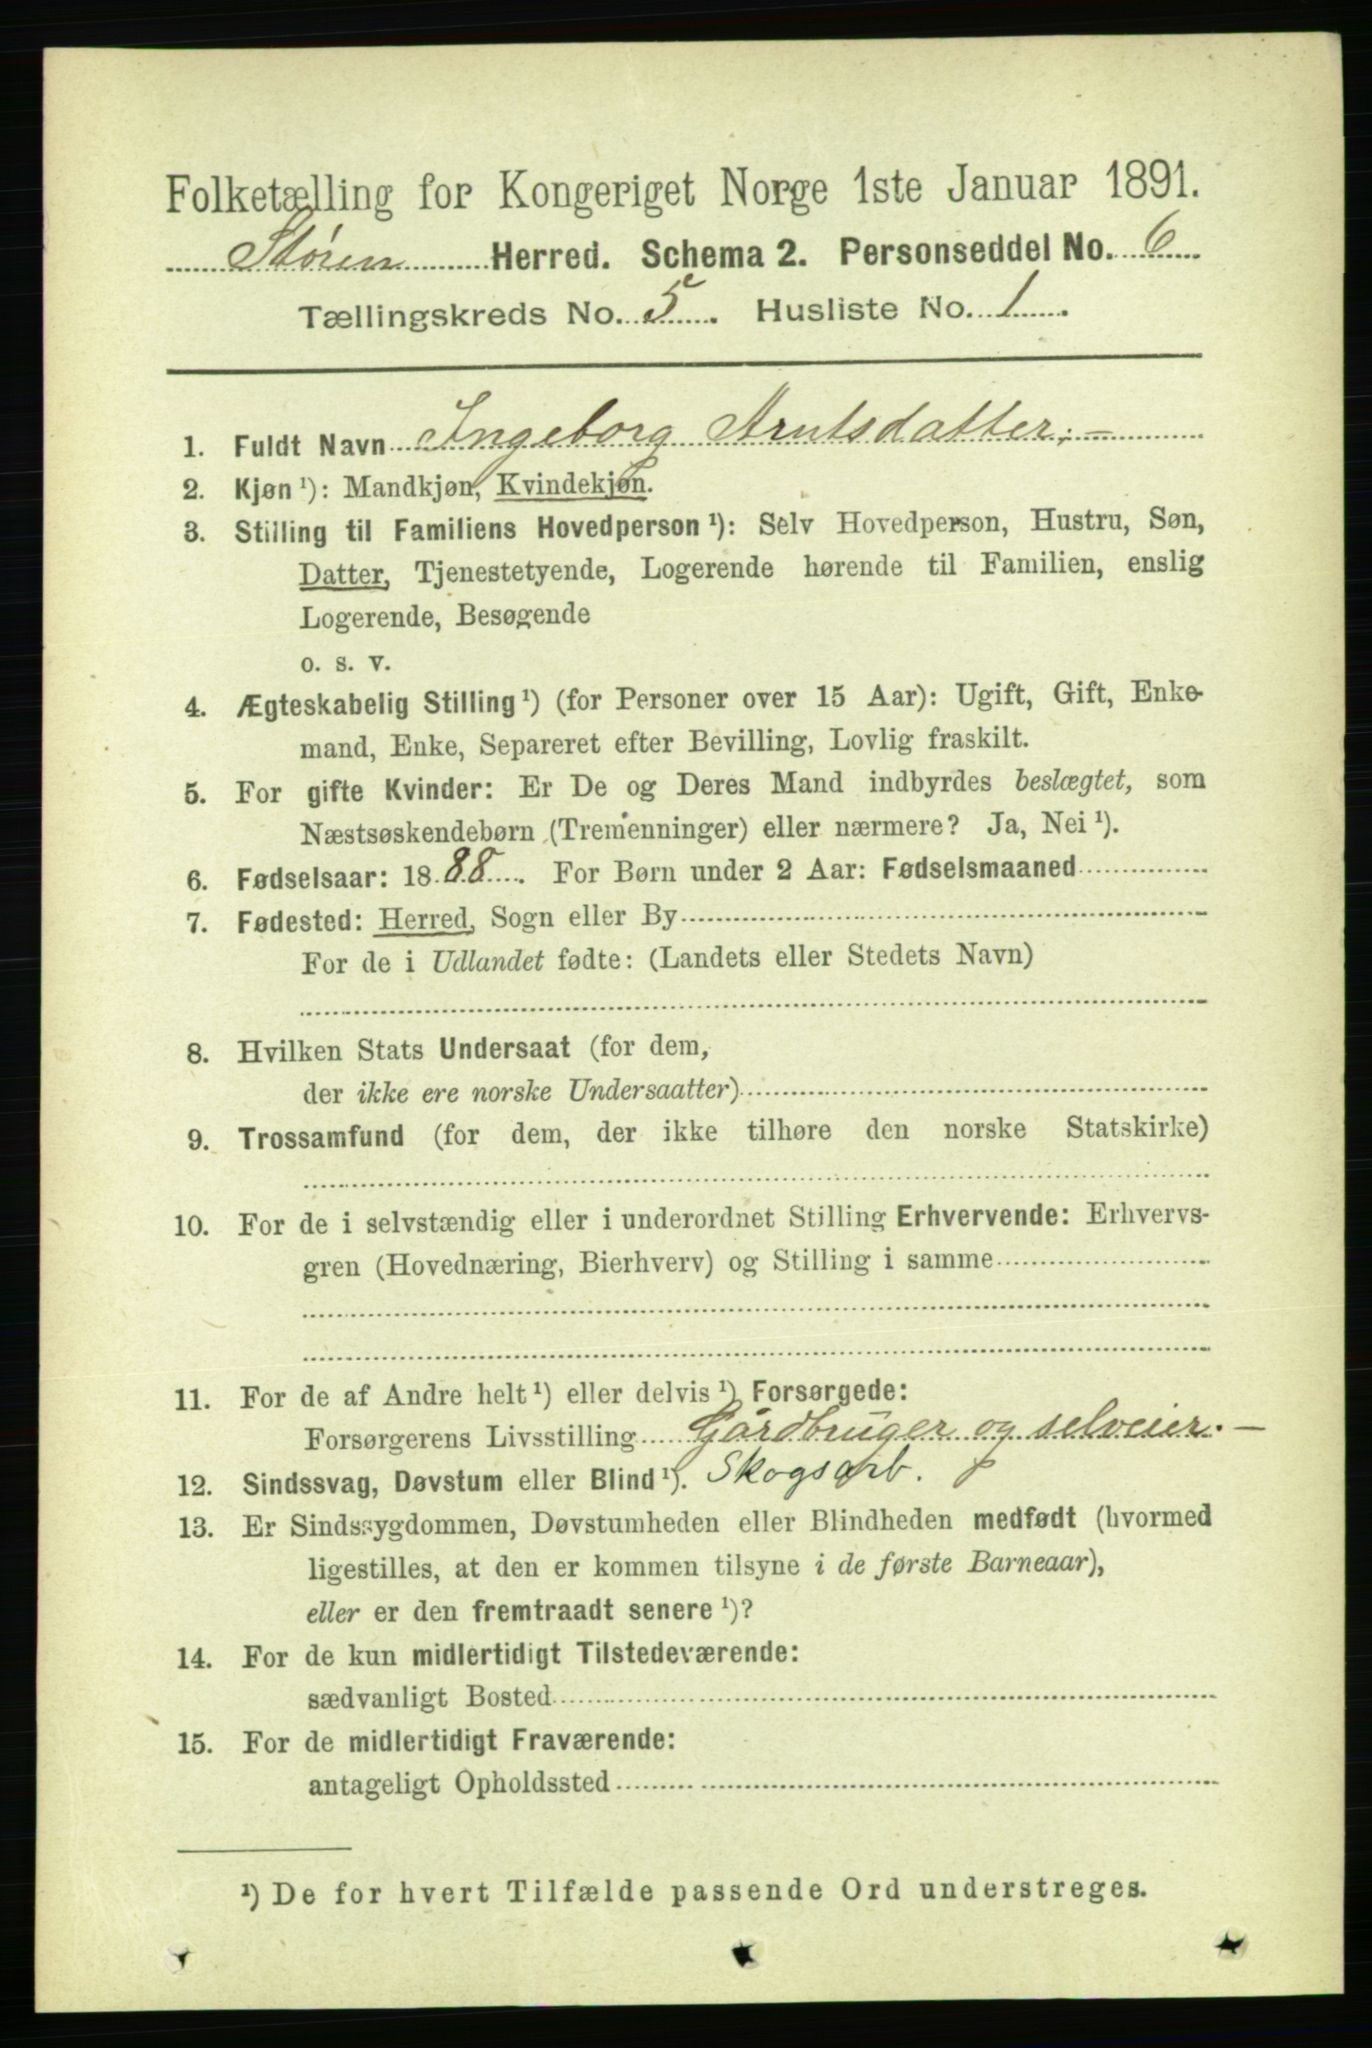 Folketælling for Kongeriget Norge 1ste Januar 1891.
Støren Herred. Schema 2. Personseddel No. 6
Tællingskreds No. 5. Husliste No. 1.
1. Fuldt Navn Ingeborg Arntsdatter; -
2. Kjøn ¹): Mandkjøn, Kvindekjøn.
3. Stilling til Familiens Hovedperson ¹): Selv Hovedperson, Hustru, Søn,
Datter, Tjenestetyende, Logerende hørende til Familien, enslig
Logerende, Besøgende
o. s. v.
4. Ægteskabelig Stilling ¹) (for Personer over 15 Aar): Ugift, Gift, Enke-
mand, Enke, Separeret efter Bevilling, Lovlig fraskilt.
5. For gifte Kvinder: Er De og Deres Mand indbyrdes beslægtet, som
Næstsøskendebørn (Tremenninger) eller nærmere? Ja, Nei ¹).
6. Fødselsaar: 1888. For Børn under 2 Aar: Fødselsmaaned
7. Fødested: Herred, Sogn eller By
For de i Udlandet fødte: (Landets eller Stedets Navn)
8. Hvilken Stats Undersaat (for dem,
der ikke ere norske Undersaatter)
9. Trossamfund (for dem, der ikke tilhøre den norske Statskirke)
10. For de i selvstændig eller i underordnet Stilling Erhvervende: Erhvervs-
gren (Hovednæring, Bierhverv) og Stilling i samme
11. For de af Andre helt ¹) eller delvis ¹) Forsørgede:
Forsørgerens Livsstilling Gårdbruger og selveier. -
12. Sindssvag, Døvstum eller Blind ¹). Skogsarb.
13. Er Sindssygdommen, Døvstumheden eller Blindheden medfødt (hvormed
ligestilles, at den er kommen tilsyne i de første Barneaar),
eller er den fremtraadt senere ¹)?
14. For de kun midlertidigt Tilstedeværende:
sædvanligt Bosted
15. For de midlertidigt Fraværende:
antageligt Opholdssted
¹) De for hvert Tilfælde passende Ord understreges.